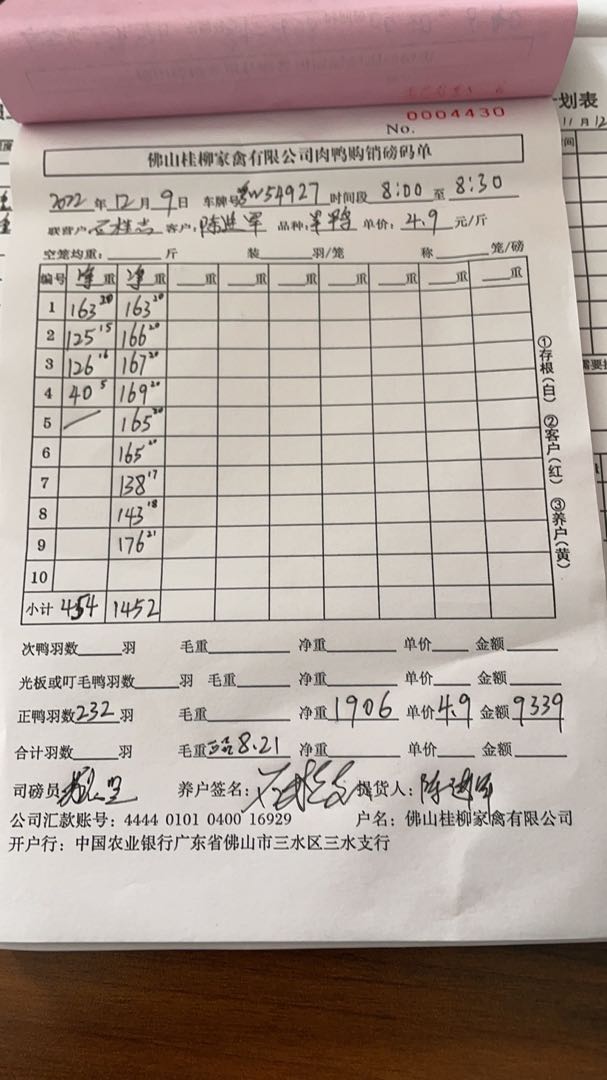 划表
11月12
0004430
No.
佛山桂柳家禽有限公司肉鸭购销磅码单
2022年12月9日 车牌号W54927 时间段8:00至8:30
联营户: 客户:陈进军 品种: 单价:4.9元/斤
空笼均重: 斤 装 羽/笼 称 笼/磅
编号 净重 净重 重 重 重 重 重 重 重
1 163 20 163 20
2 125 15 166 20
3 126 16 167 20
4 40 5 169 20
5 165 20
6 165 20
7 138 17
8 143 18
9 176 21
10
小计 454 1452
①存根(白) ②客户(红) ③养户(黄)
次鸭羽数 羽 毛重 净重 单价 金额
光板或叮毛鸭羽数 羽 毛重 净重 单价 金额
正鸭羽数232羽 毛重 净重1906 单价4.9 金额9339
合计羽数 羽 毛重 8.21 净重 单价 金额
司磅员: 养户签名: 提货人:陈进军
公司汇款账号: 4444 0101 0400 16929 户名: 佛山桂柳家禽有限公司
开户行: 中国农业银行广东省佛山市三水区三水支行